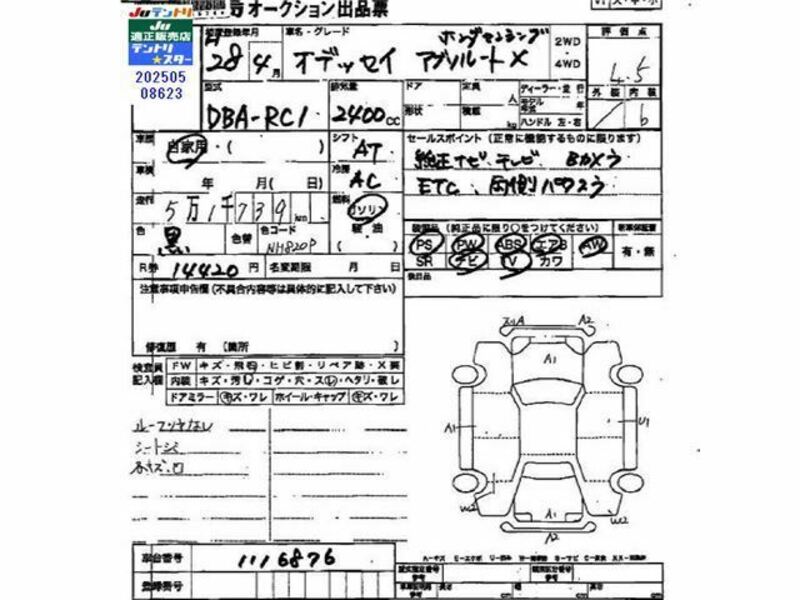 Juテントリ
Ju
適正販売店
テントリ
★スター
202505
08623
オークション出品票
初度登録年月
車名・グレード
ホンダセンシング
2WD
4WD
評価点
H
28年4月
オデッセイ アブソルートX
4.5
外装 内装
6
型式
DBA-RC1
排気量
2400cc
ドア
形状
定員
人
積載
kg
ディーラー・並行
モデル
年式
年
ハンドル 左・右
車歴
自家用・( )
シフト
AT
セールスポイント(正常に機能するものに限ります)
純正ナビ・テレビ Bカメラ
ETC、両側パワスラ
車検
年 月( 日)
冷房
AC
走行
5万1千739km
燃料
ガソリン
軽油
( )
色
黒
色替
色コード
NH820P
装備品(純正品に限り○をつけてください)
新車保証書
PS PW ABS エアB AW
有・無
SR ナビ TV カワ
R券 14420円
名変期限 月 日
後日品
注意事項申告欄(不具合内容等は具体的に記入して下さい)
修復歴 有 (箇所 )
検査員
記入欄
FW キズ・飛石・ヒビ割・リペア跡・X要
内装 キズ・汚レ・コゲ・穴・スレ・ヘタリ・破レ
ドアミラー キズ・ワレ ホイール・キャップ キズ・ワレ
シートシミ
A
A2
A1
A1
U1
A1
A2
W2
W2
車台番号
1116876
登録番号
長さ cm
幅 cm
高さ cm